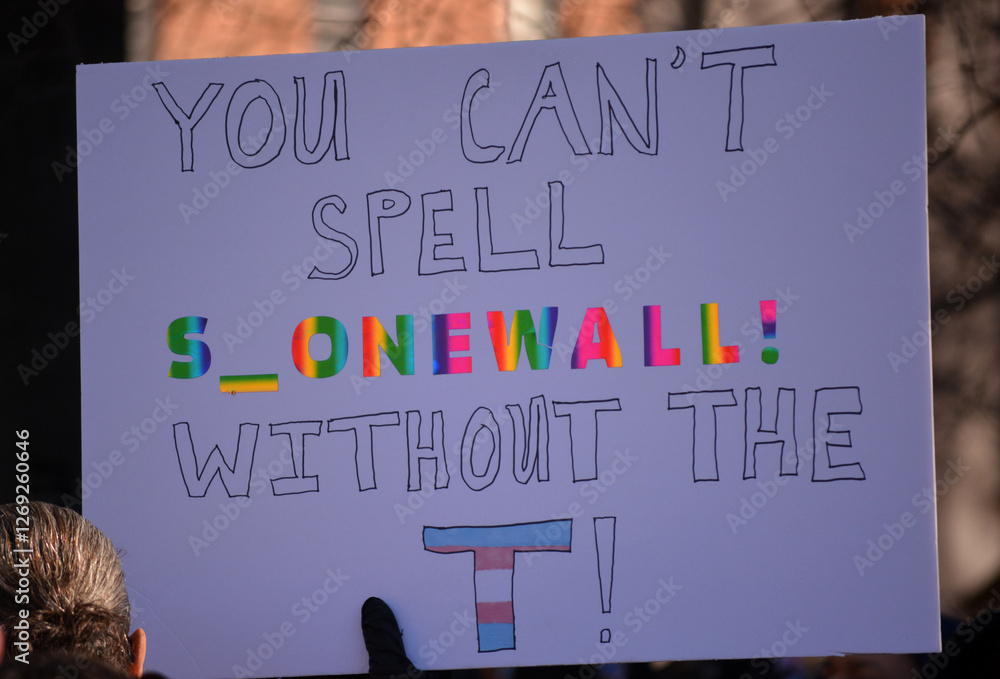 YOU CAN'T
SPELL
S_ONEWALL!
WITHOUT THE
T!
Adobe Stock | #1269260646